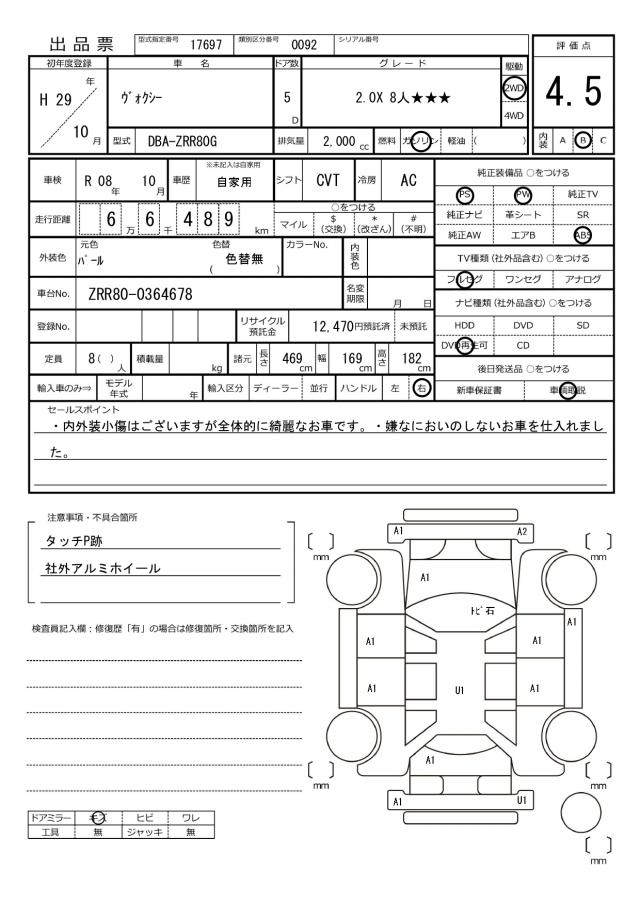 出品票 型式指定番号 17697 類別区分番号 0092 シリアル番号
評価点
4.5
内装 A B C
初年度登録 車名 ドア数 グレード 駆動
H 29 年 10 月 ヴォクシー 5 D 2.0X 8人★★★ 2WD
4WD
型式 DBA-ZRR80G 排気量 2,000 cc 燃料 ガソリン 軽油 ( )
車検 R 08 年 10 月 車歴 ※未記入は自家用 自家用 シフト CVT 冷房 AC
走行距離 6 万 6 千 4 8 9 km
○をつける
マイル $ (交換) * (改ざん) # (不明)
外装色 元色 パール 色替 ( 色替無 ) カラーNo. 内装色
車台No. ZRR80-0364678 名変期限 月 日
登録No. リサイクル預託金 12,470円預託済 未預託
定員 8( ) 人 積載量 kg 諸元 長さ 469 cm 幅 169 cm 高さ 182 cm
輸入車のみ⇒ モデル年式 年 輸入区分 ディーラー 並行 ハンドル 左 右
純正装備品 ○をつける
PS PW 純正TV
純正ナビ 革シート SR
純正AW エアB ABS
TV種類 (社外品含む) ○をつける
フルセグ ワンセグ アナログ
ナビ種類 (社外品含む) ○をつける
HDD DVD SD
DVD再生可 CD
後日発送品 ○をつける
新車保証書 車輌取説
セールスポイント
・内外装小傷はございますが全体的に綺麗なお車です。・嫌なにおいのしないお車を仕入れまし
た。
注意事項・不具合箇所
タッチP跡
社外アルミホイール
検査員記入欄：修復歴「有」の場合は修復箇所・交換箇所を記入
ドアミラー キズ ヒビ ワレ
工具 無 ジャッキ 無
A1 A2
[ ] mm [ ] mm
A1
トビ石
A1
A1 A1
A1 U1 A1
A1
[ ] mm [ ] mm
A1 U1
[ ] mm